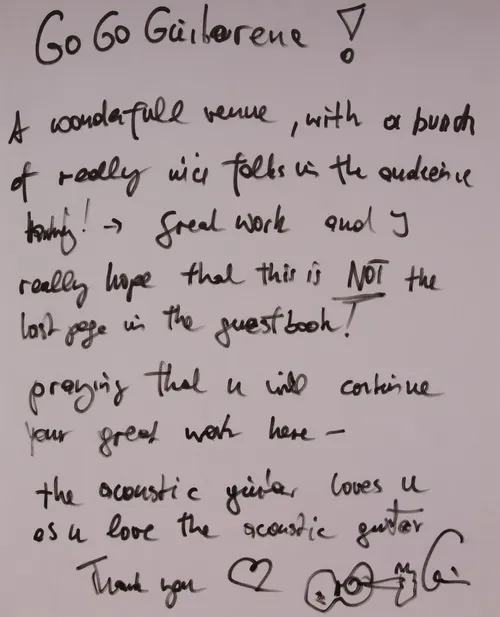 Go Go Guitarena !
A wonderfull venue, with a bunch
of really nice folks in the audience
! → great work and I
really hope that this is NOT the
last page in the guestbook!
praying that u will continue
your great work here —
the acoustic guitar loves u
as u love the acoustic guitar
Thank you ♡